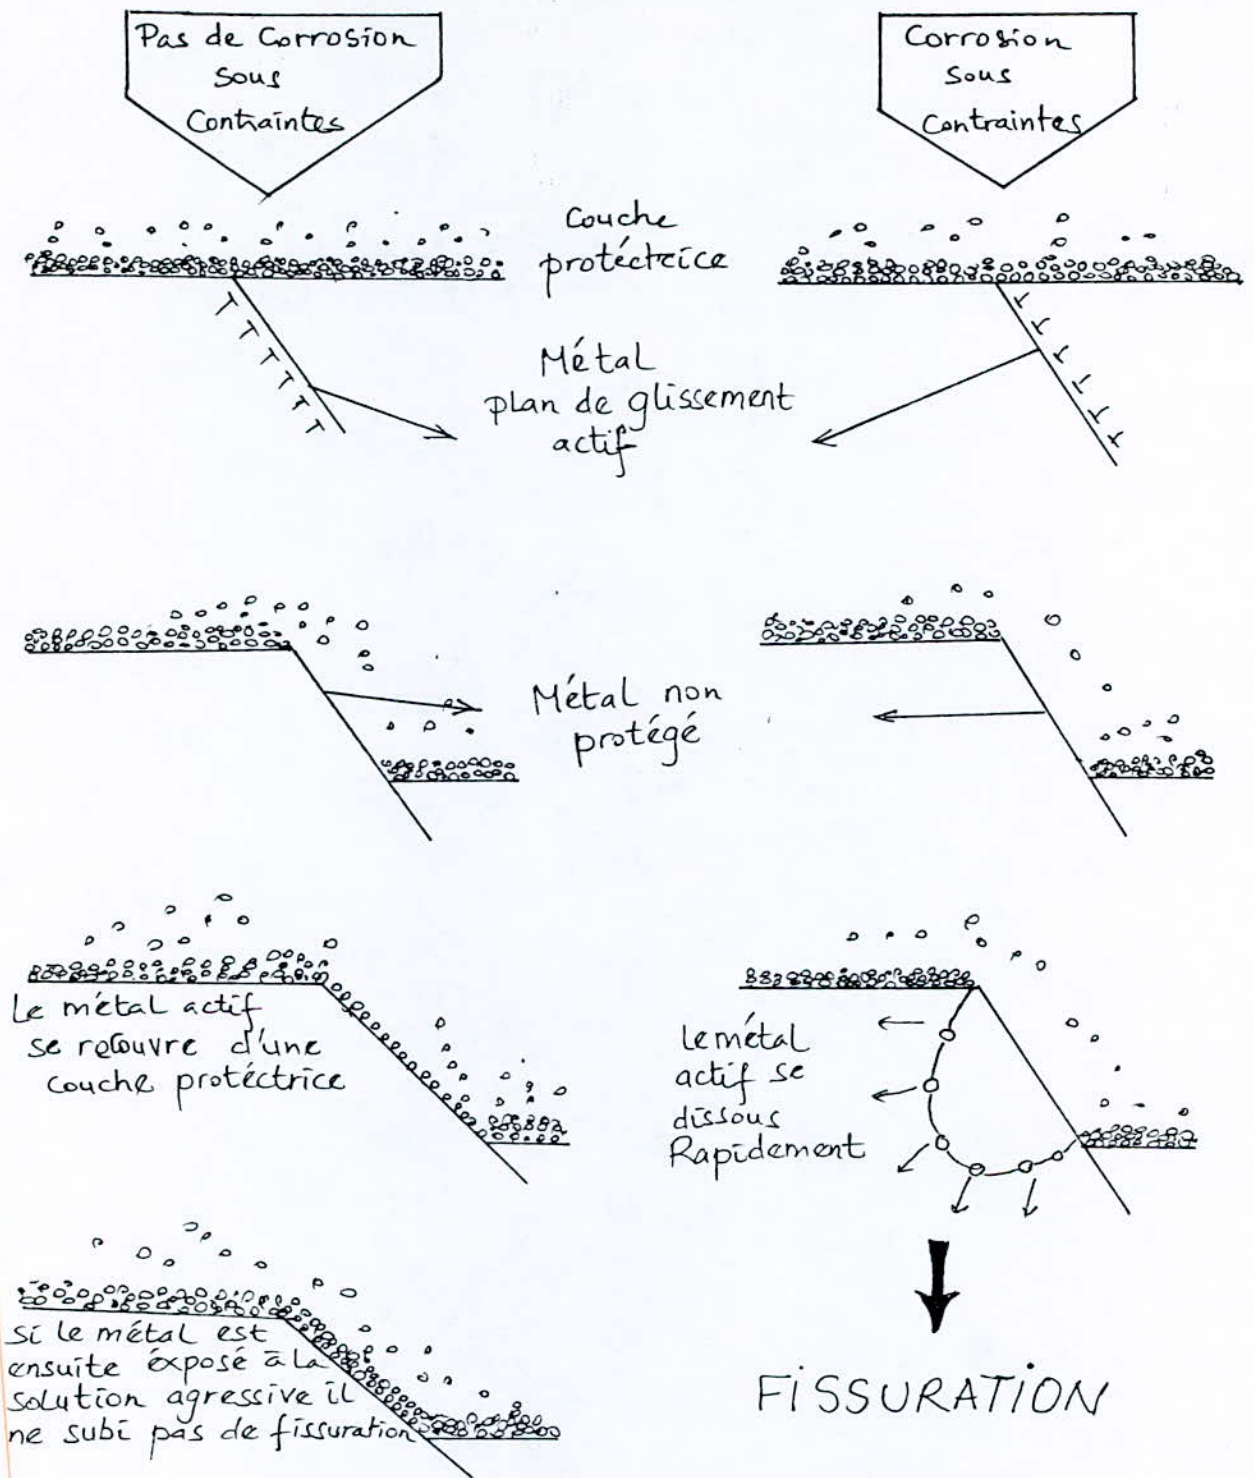 Pas de Corrosion
sous
Contraintes
Corrosion
sous
Contraintes
Couche
protéctrice
Métal
plan de glissement
actif
Métal non
protégé
Le métal actif
se recouvre d'une
couche protéctrice
Le métal
actif se
dissous
Rapidement
si le métal est
ensuite éxposé à la
solution agressive il
ne subi pas de fissuration
FISSURATION